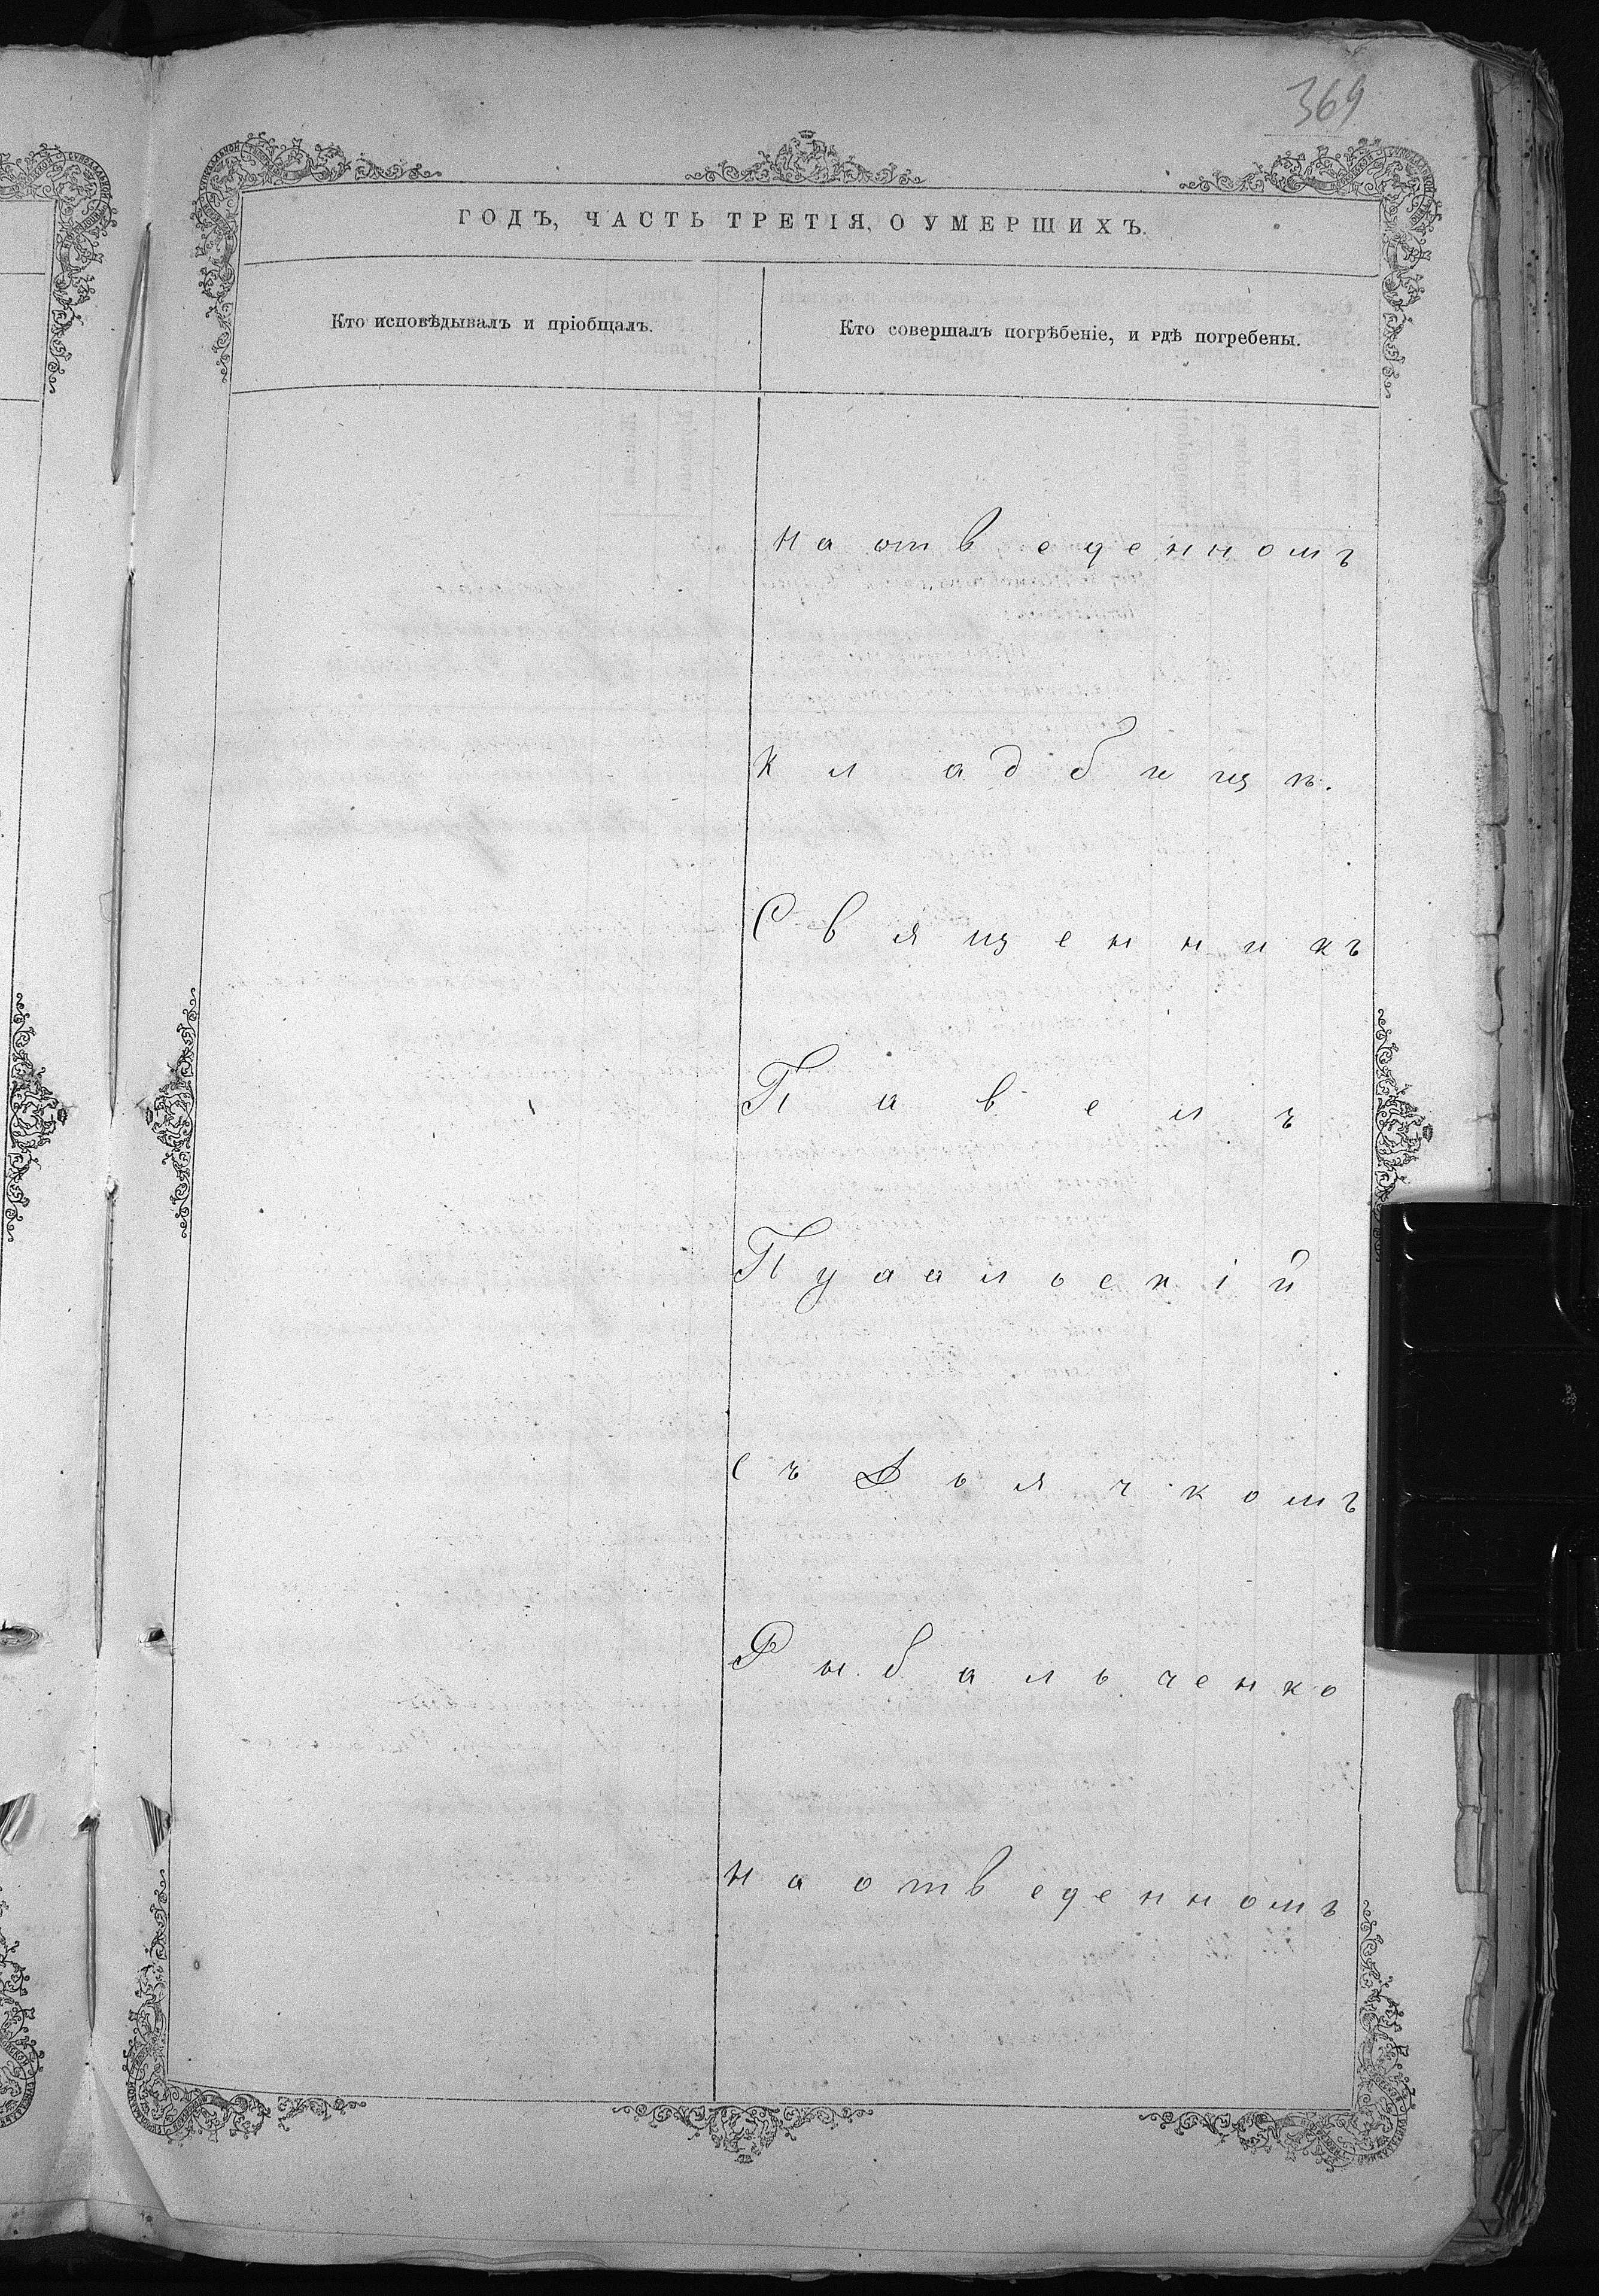 369
ГОДЪ, ЧАСТЬ ТРЕТІЯ, О УМЕРШИХЪ.
Кто исповѣдывалъ и пріобщалъ.
Кто совершалъ погрѣбеніе, и гдѣ погребены.
на отведенномъ
кладбищѣ.
Священникъ
Павелъ
съ Дьячкомъ
Рыбальченко
на отведенномъ